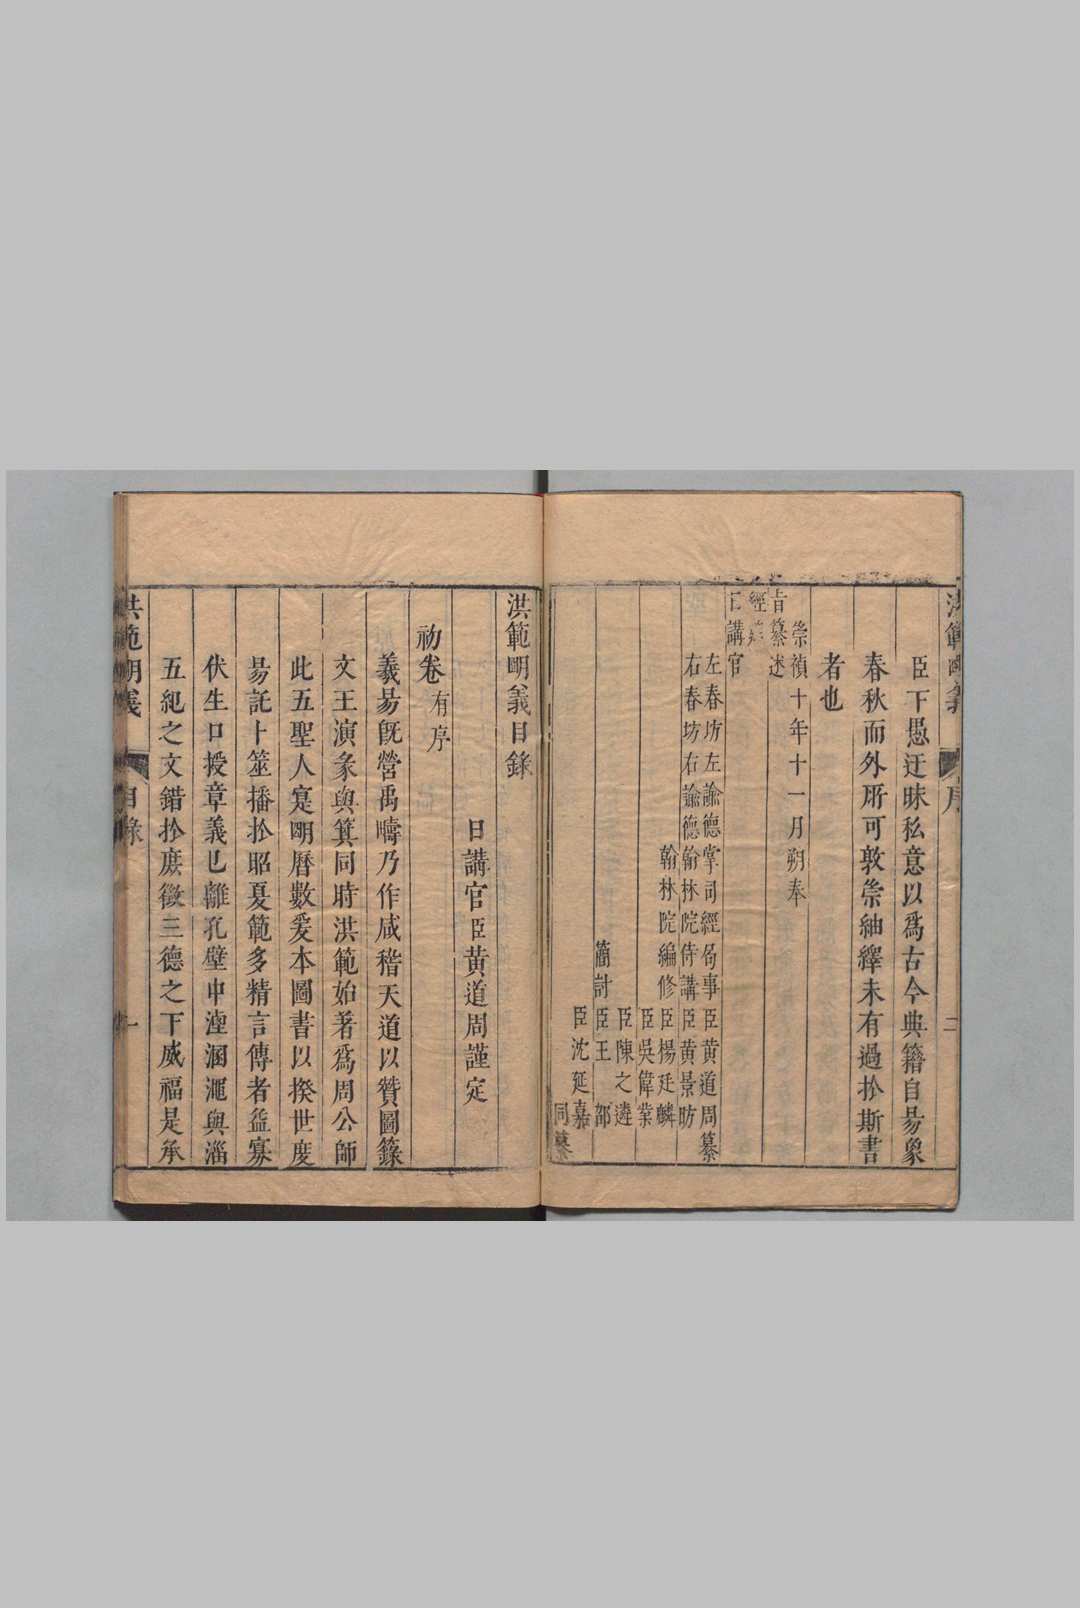 洪範明義
序
二
臣下愚迂昧私意以爲古今典籍自昜象
春秋而外所可敦崇紬繹未有過於斯書
者也
崇禎十年十一月朔奉
旨纂述
經筵
日講官
左春坊左諭德掌司經局事臣黃道周纂
右春坊右諭德翰林院侍講臣黃景昉
翰林院編修臣楊廷麟
臣吳偉業
臣陳之遴
簡討臣王鄤
臣沈延嘉
同纂
洪範明義目錄
日講官臣黃道周謹定
初卷有序
羲昜旣營禹疇乃作咸稽天道以贊圖籙
文王演彖與箕同時洪範始著爲周公師
此五聖人寔明曆數爰本圖書以揆世度
昜託十筮播於昭夏範多精言傳者益寡
伏生口授章義已離孔壁中湮涵澠與淄
五紀之文錯於庶徵三德之下威福是承
洪範明義
目錄
一